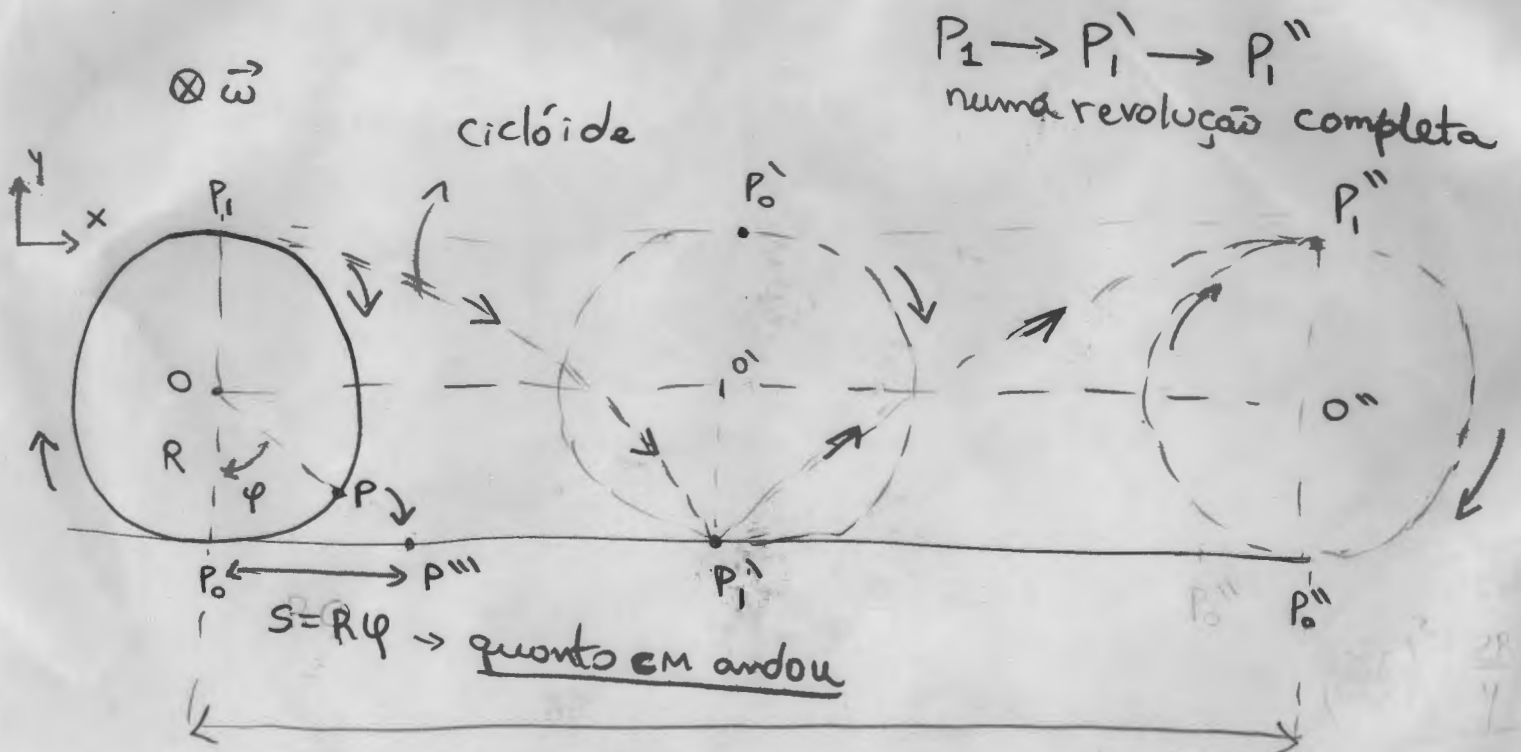 P₁ → P₁` → P₁``
numa revolução completa
⊗ ω⃗
ciclóide
y
x
P₁
P₀`
P₁``
O
O`
O``
R
φ
P
P₀
P```
P₁`
P₀``
S=Rφ → quanto CM andou
2R